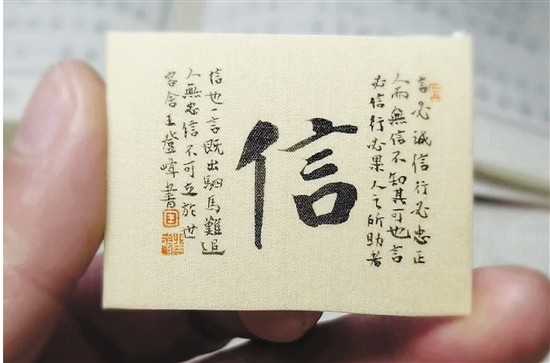 言必诚信行必忠正
人而無信不知其可也言
必信行必果人之所助者
信
信也一言既出駟馬難追
人無忠信不可立於世
容舍王登峰書